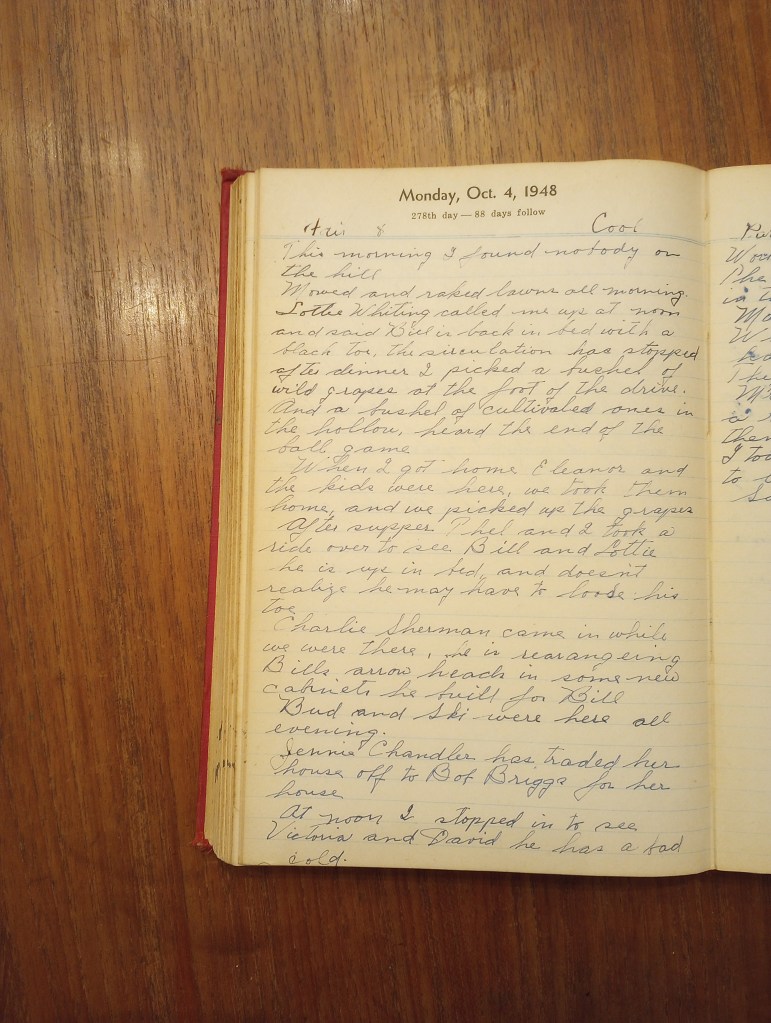 Monday, Oct. 4, 1948
278th day — 88 days follow
Fair 8 Cool
This morning I found nobody on
the hill
Mowed and raked lawns all morning.
Lottie Whiting called me up at noon
and said Bill is back in bed with a
black toe, the circulation has stopped
after dinner I picked a bushel of
wild grapes at the foot of the drive.
And a bushel of cultivated ones in
the hollow, heard the end of the
ball game
When I got home Eleanor and
the kids were here, we took them
home, and we picked up the grapes
After supper Phel and I took a
ride over to see Bill and Lottie
he is up in bed, and doesn't
realize he may have to loose his
toe
Charlie Sherman came in while
we were there, he is rearangeing
Bills arrow heads in some new
cabinets he built for Bill
Bud and Ski were here all
evening.
Jennie Chandler has traded her
house off to Bob Briggs for her
house
At noon I stopped in to see
Victoria and David he has a bad
cold.
Wor
Phe
is t
Ma
W
The
M
a
then
I too
to
Sa